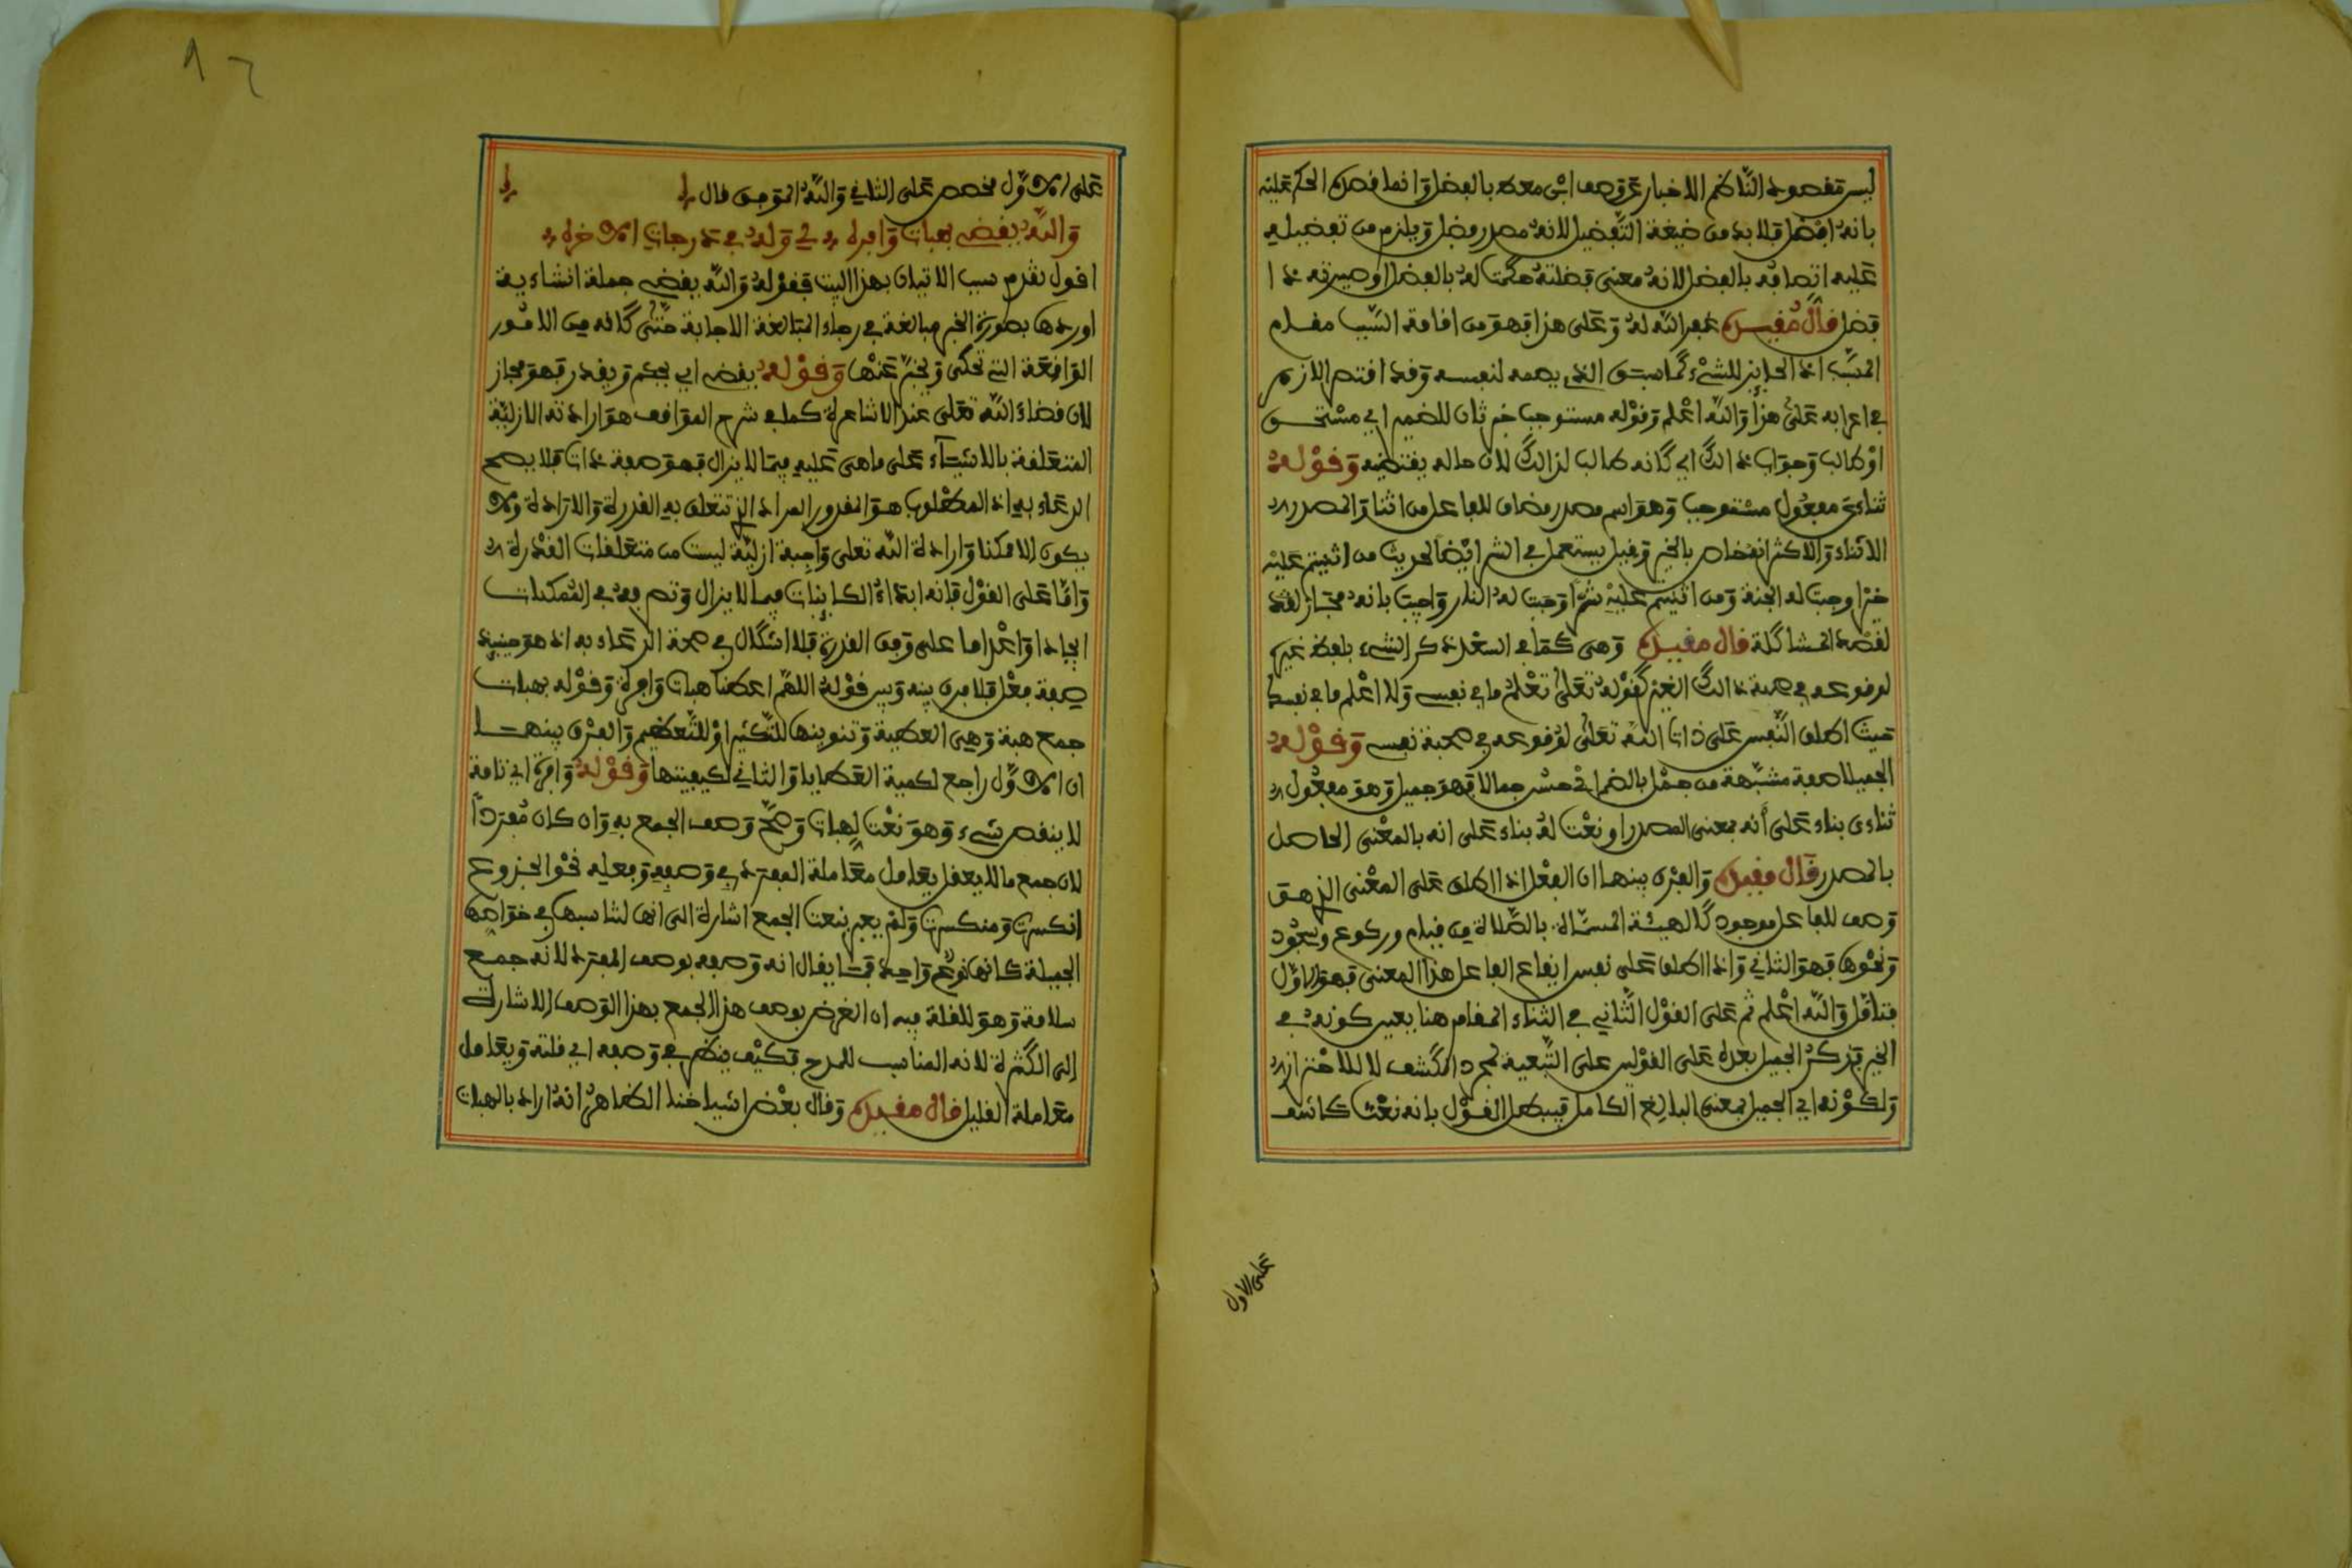 ليس مقصود الناظم الاخبار عن وصف ابن معط بالفضل وانما قصده الحكم عليه
بانه افضل فلا بد من صيغة التفضيل لانه مصدر فضل ويلزم من تفضيله
عليه اتصافه بالفضل لانه معنى فضلته حكمت له بالفضل او صيرته ذا
فضل قال مفيده غفر الله له وعلى هذا فهو من اقامة السبب مقام
المسبب اذ الحايز للشيء كما سبق الذي يضمه لنفسه وقد اقتصر الازهري
في اعرابه على هذا والله اعلم وقوله مستوجب خبر ثان للضمير اي مستحق
او طالب وجواب ذلك اي كانه طالب لذلك لان حاله يقتضيه وقوله
ثناءي مفعول مستوجب وهو اسم مصدر مضاف للفاعل من اثنا والمصدر
الاثناء والاكثر انه خاص بالخير وقيل يستعمل في الشر ايضا لحديث من اثنيتم عليه
خيرا وجبت له الجنة ومن اثنيتم عليه شرا وجبت له النار واجيب بانه مجاز لقصد
لقصد المشاكلة قال مفيده وهي كما في السعد ذكر الشيء بلفظ غيره
لوقوعه في صحبة ذلك الغير كقوله تعلى تعلم ما في نفسي ولا اعلم ما في نفسك
حيث اطلق النفس على ذات الله تعلى لوقوعه في صحبة نفسي وقوله
الجميلا صفة مشبهة من جمل بالضم اي حسن جمالا فهو جميل وهو مفعول
ثناءي بناء على أنه بمعنى المصدر او نعت له بناء على انه بالمعنى الحاصل
بالمصدر قال مفيده والفرق بينهما ان الفعل اذا اطلق على المعنى الذي هو
وصف للفاعل موجود كالهيئة المسماة بالصلاة من قيام وركوع وسجود
ونحوها فهو الثاني واذا اطلق على نفس ايقاع الفاعل هذا المعنى فهو الاول
فتامل والله اعلم ثم على القول الثاني في الثناء المقام هنا يعين كونه في
الخير فذكر الجميل بعده على القولين على التبعية لمجرد الكشف لا للاحتراز
ولكونه اي الجميل بمعنى البالغ الكامل فيبطل القول بانه نعت كاشف
على الاول
على الاول مخصص على الثاني والله الموفق قال
والله يقضي بهبات وافره لي وله في درجات الاخره
اقول تقدم سبب الاتيان بهذا البيت فقوله والله يقضي جملة انشاءية
اوردها بصورة الخبر مبالغة في رجاء المبالغة الاجابة حتى كانه من الامور
الواقعة التي تحكى ويخبر عنها وقوله يقضي اي يحكم ويقدر فهو مجاز
لان قضاء الله تعلى عند الاشاعرة كما في شرح المواقف هو ارادته الازلية
المتعلقة بالاشياء على ما هي عليه فيما لا يزال فهو صفة ذات فلا يصح
الدعاء به اذ المطلوب هو المقدور المراد الذي تتعلق به القدرة والارادة ولا
يكون الا ممكنا وارادة الله تعلى واجبة ازلية ليست من متعلقات القدرة
واما على القول فانه ابتداء الكاينات فيما لا يزال وتصرفه في الممكنات
ايجادا واعداما على وفق القدرة فلا اشكال في صحة الدعاء به اذ هو حينيذ
صفة فعل فلا فرق بينه وبين قوله اللهم اعطنا هبات وافرة وقوله بهبات
جمع هبة وهي العطية وتنوينها للتكثير او للتعظيم والفرق بينهما
ان الاول راجع لكمية العطايا والثاني لكيفيتها وقوله وافرة اي تامة
لا ينقص شيء وهو نعت لهبات وصح وصف الجمع به وان كان مفردا
لان جمع ما لا يعقل يعامل معاملة المفرد في وصفه وفعله نحو الجذوع
انكسرت ومنكسرة ولم يعبر بنعت الجمع اشارة الى انها لتناسبها في خواصها
الجميلة كانها نوع واحد فما يقال انه وصفه بوصف المفرد لانه جمع
سلامة وهو للقلة فيه ان الغرض بوصف هذا الجمع بهذا الوصف الاشارة
الى الكثرة لانه المناسب للمدح فكيف ينظر في وصفه اي قلته ويعامل
معاملة القليل قال مفيده وقال بعض اشياخنا الظاهر انه اراد بالهبات